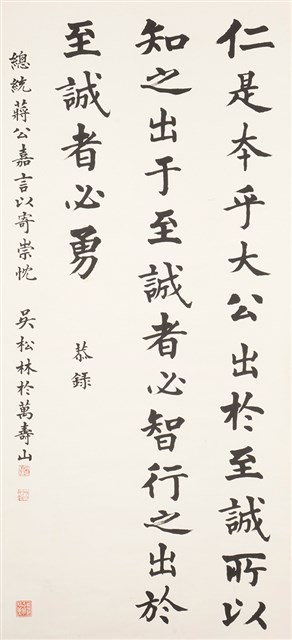 仁是本乎大公出於至誠所以
知之出于至誠者必智行之出於
至誠者必勇
恭錄
總統蔣公嘉言以寄崇忱
吳松林於萬壽山